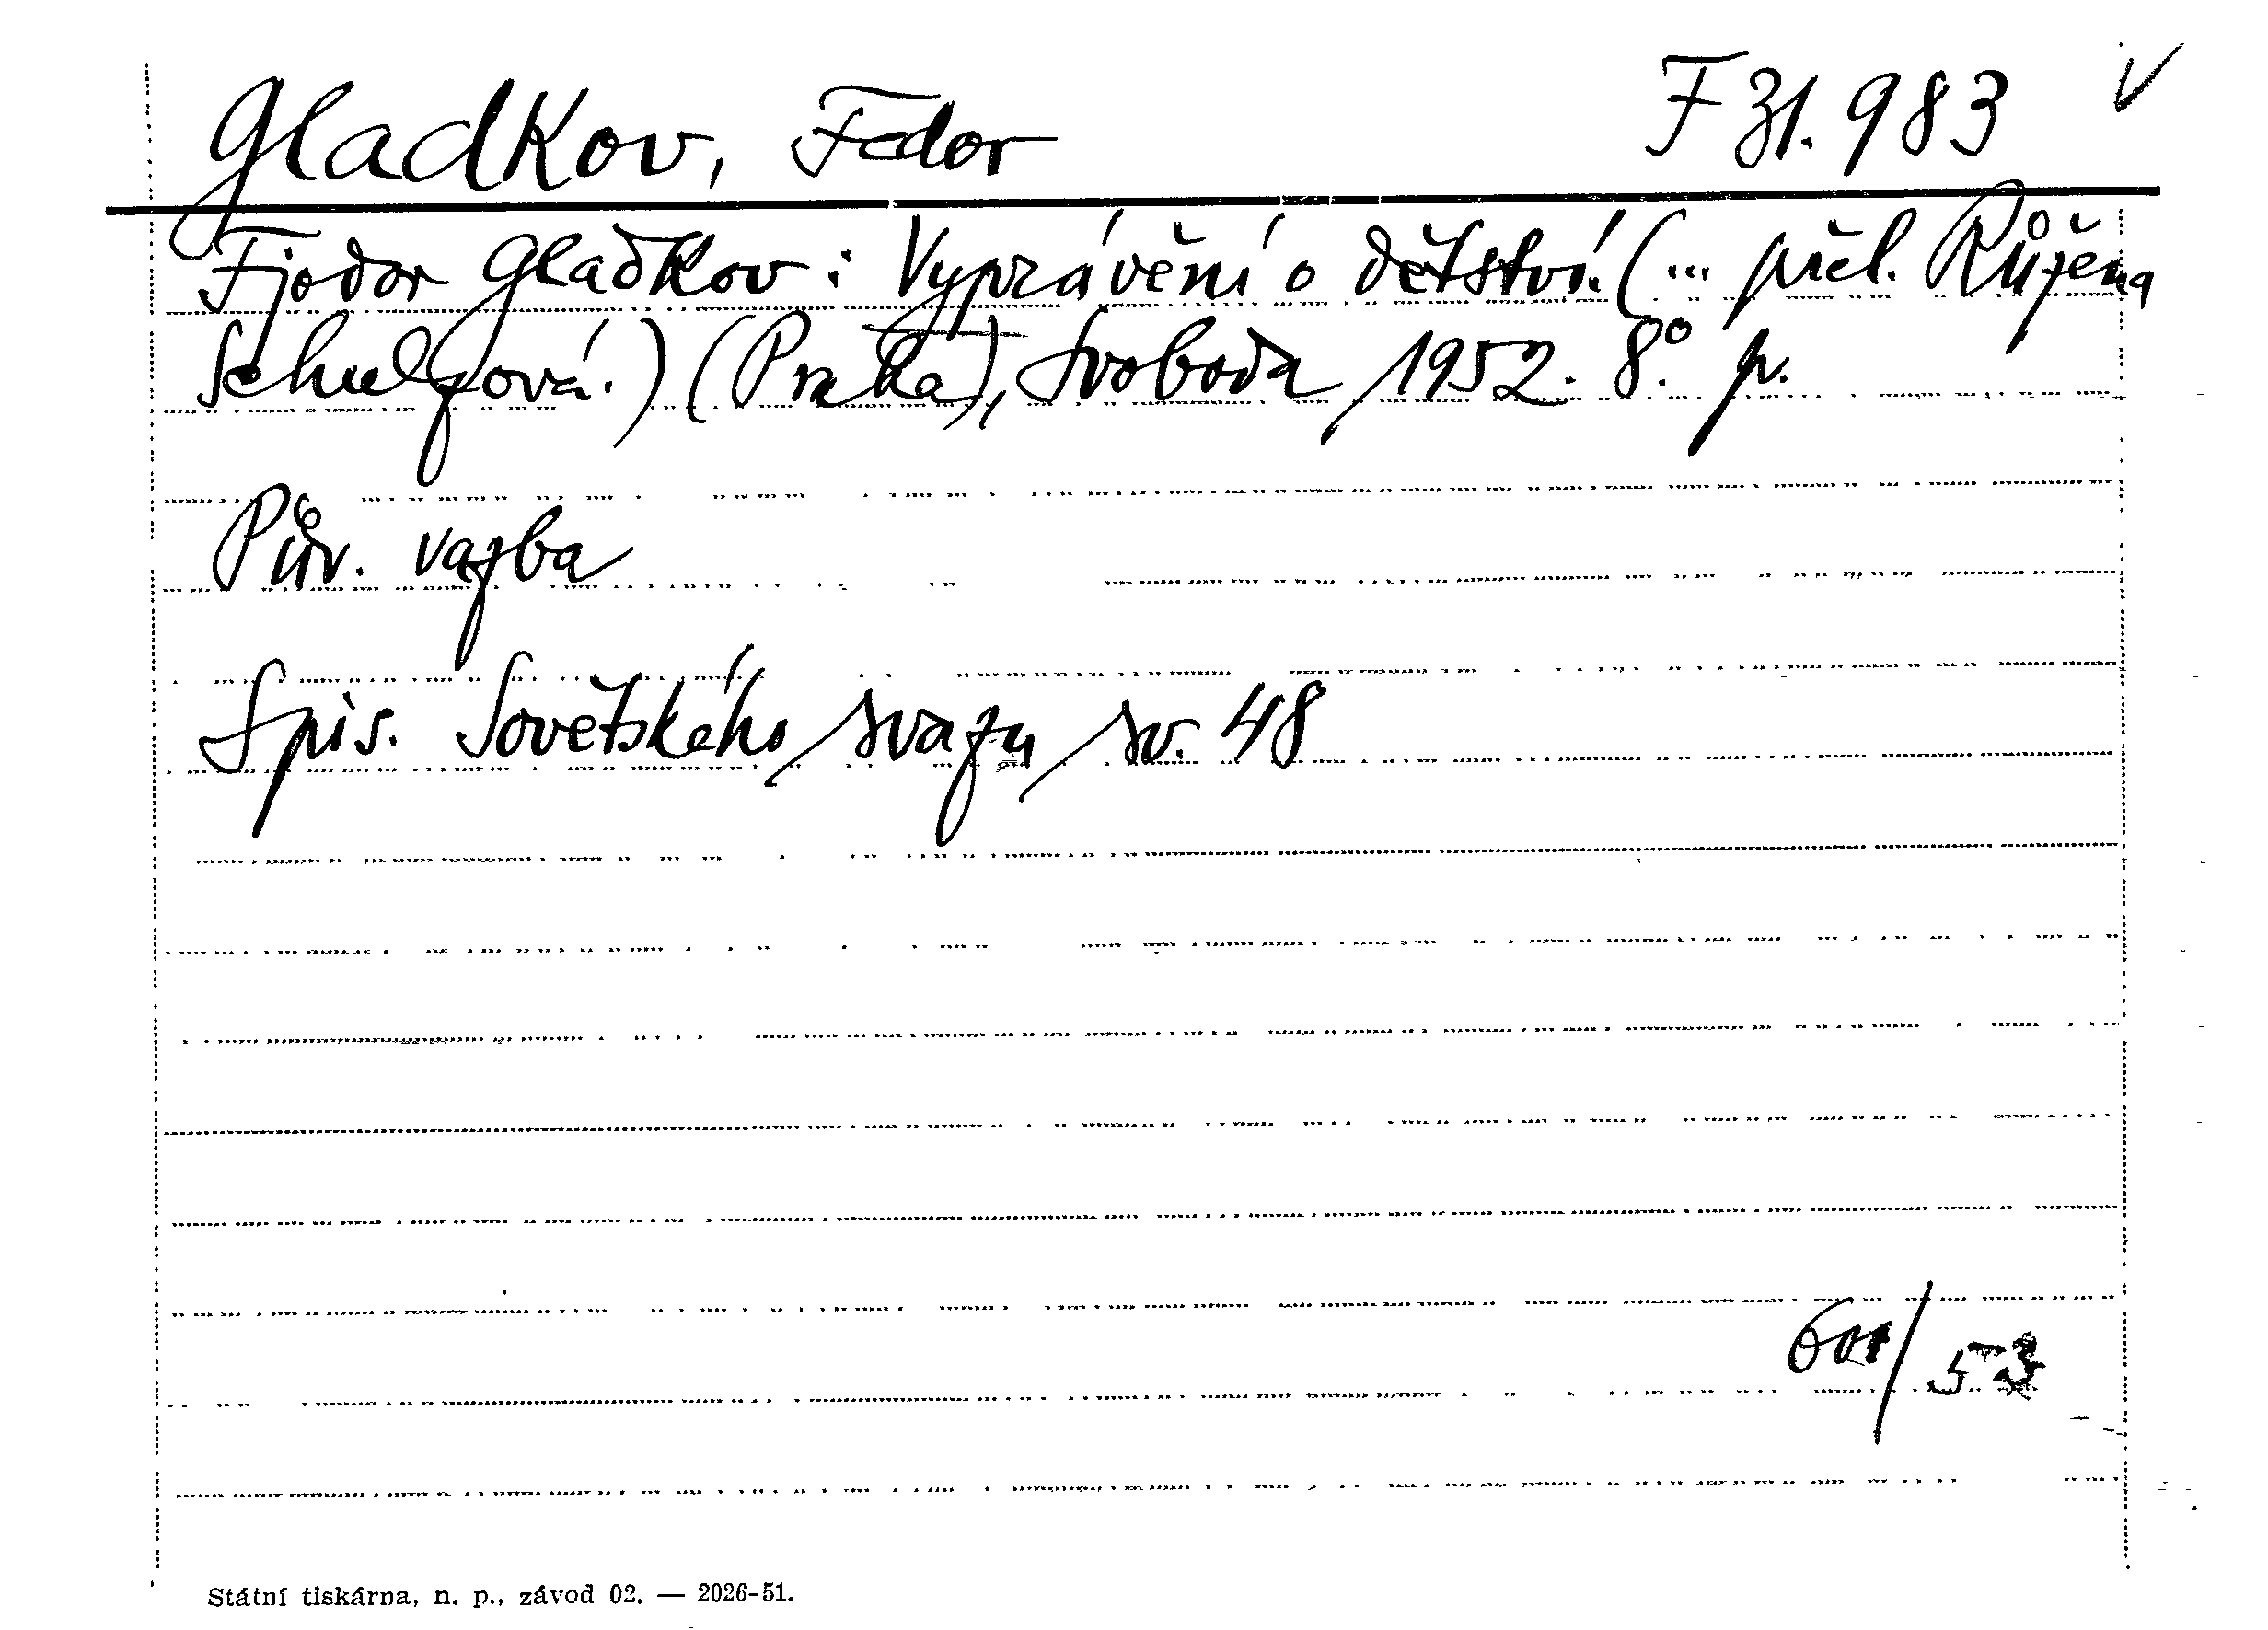 Gladkov, Fedor F 31.983 ✓
Fjodor Gladkov: Vyprávění o dětství. (... přel. Růžena
Schulzová.) (Praha), Svoboda 1952. 8°. p.
Pův. vazba
Spis. Sovětského svazu sv. 48
601/53
Státní tiskárna, n. p., závod 02. — 2026-51.